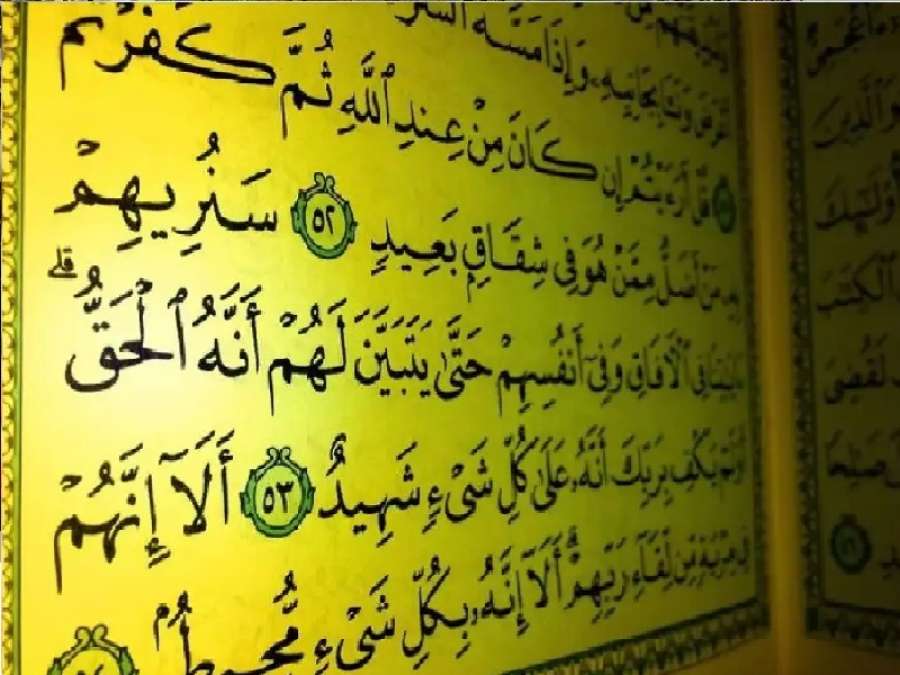 أَعْرَضَ وَنَـَٔا بِجَانِبِهِۦ وَإِذَا مَسَّهُ ٱلشَّرُّ
قُلْ أَرَءَيْتُمْ إِن كَانَ مِنْ عِندِ ٱللَّهِ ثُمَّ كَفَرْتُم
بِهِۦ مَنْ أَضَلُّ مِمَّنْ هُوَ فِى شِقَاقٍۭ بَعِيدٍ ٥٢ سَنُرِيهِمْ
ءَايَٰتِنَا فِى ٱلْءَافَاقِ وَفِىٓ أَنفُسِهِمْ حَتَّىٰ يَتَبَيَّنَ لَهُمْ أَنَّهُ ٱلْحَقُّ ۗ
أَوَلَمْ يَكْفِ بِرَبِّكَ أَنَّهُۥ عَلَىٰ كُلِّ شَىْءٍ شَهِيدٌ ٥٣ أَلَآ إِنَّهُمْ
فِى مِرْيَةٍ مِّن لِّقَآءِ رَبِّهِمْ ۗ أَلَآ إِنَّهُۥ بِكُلِّ شَىْءٍ مُّحِيطٌۢ